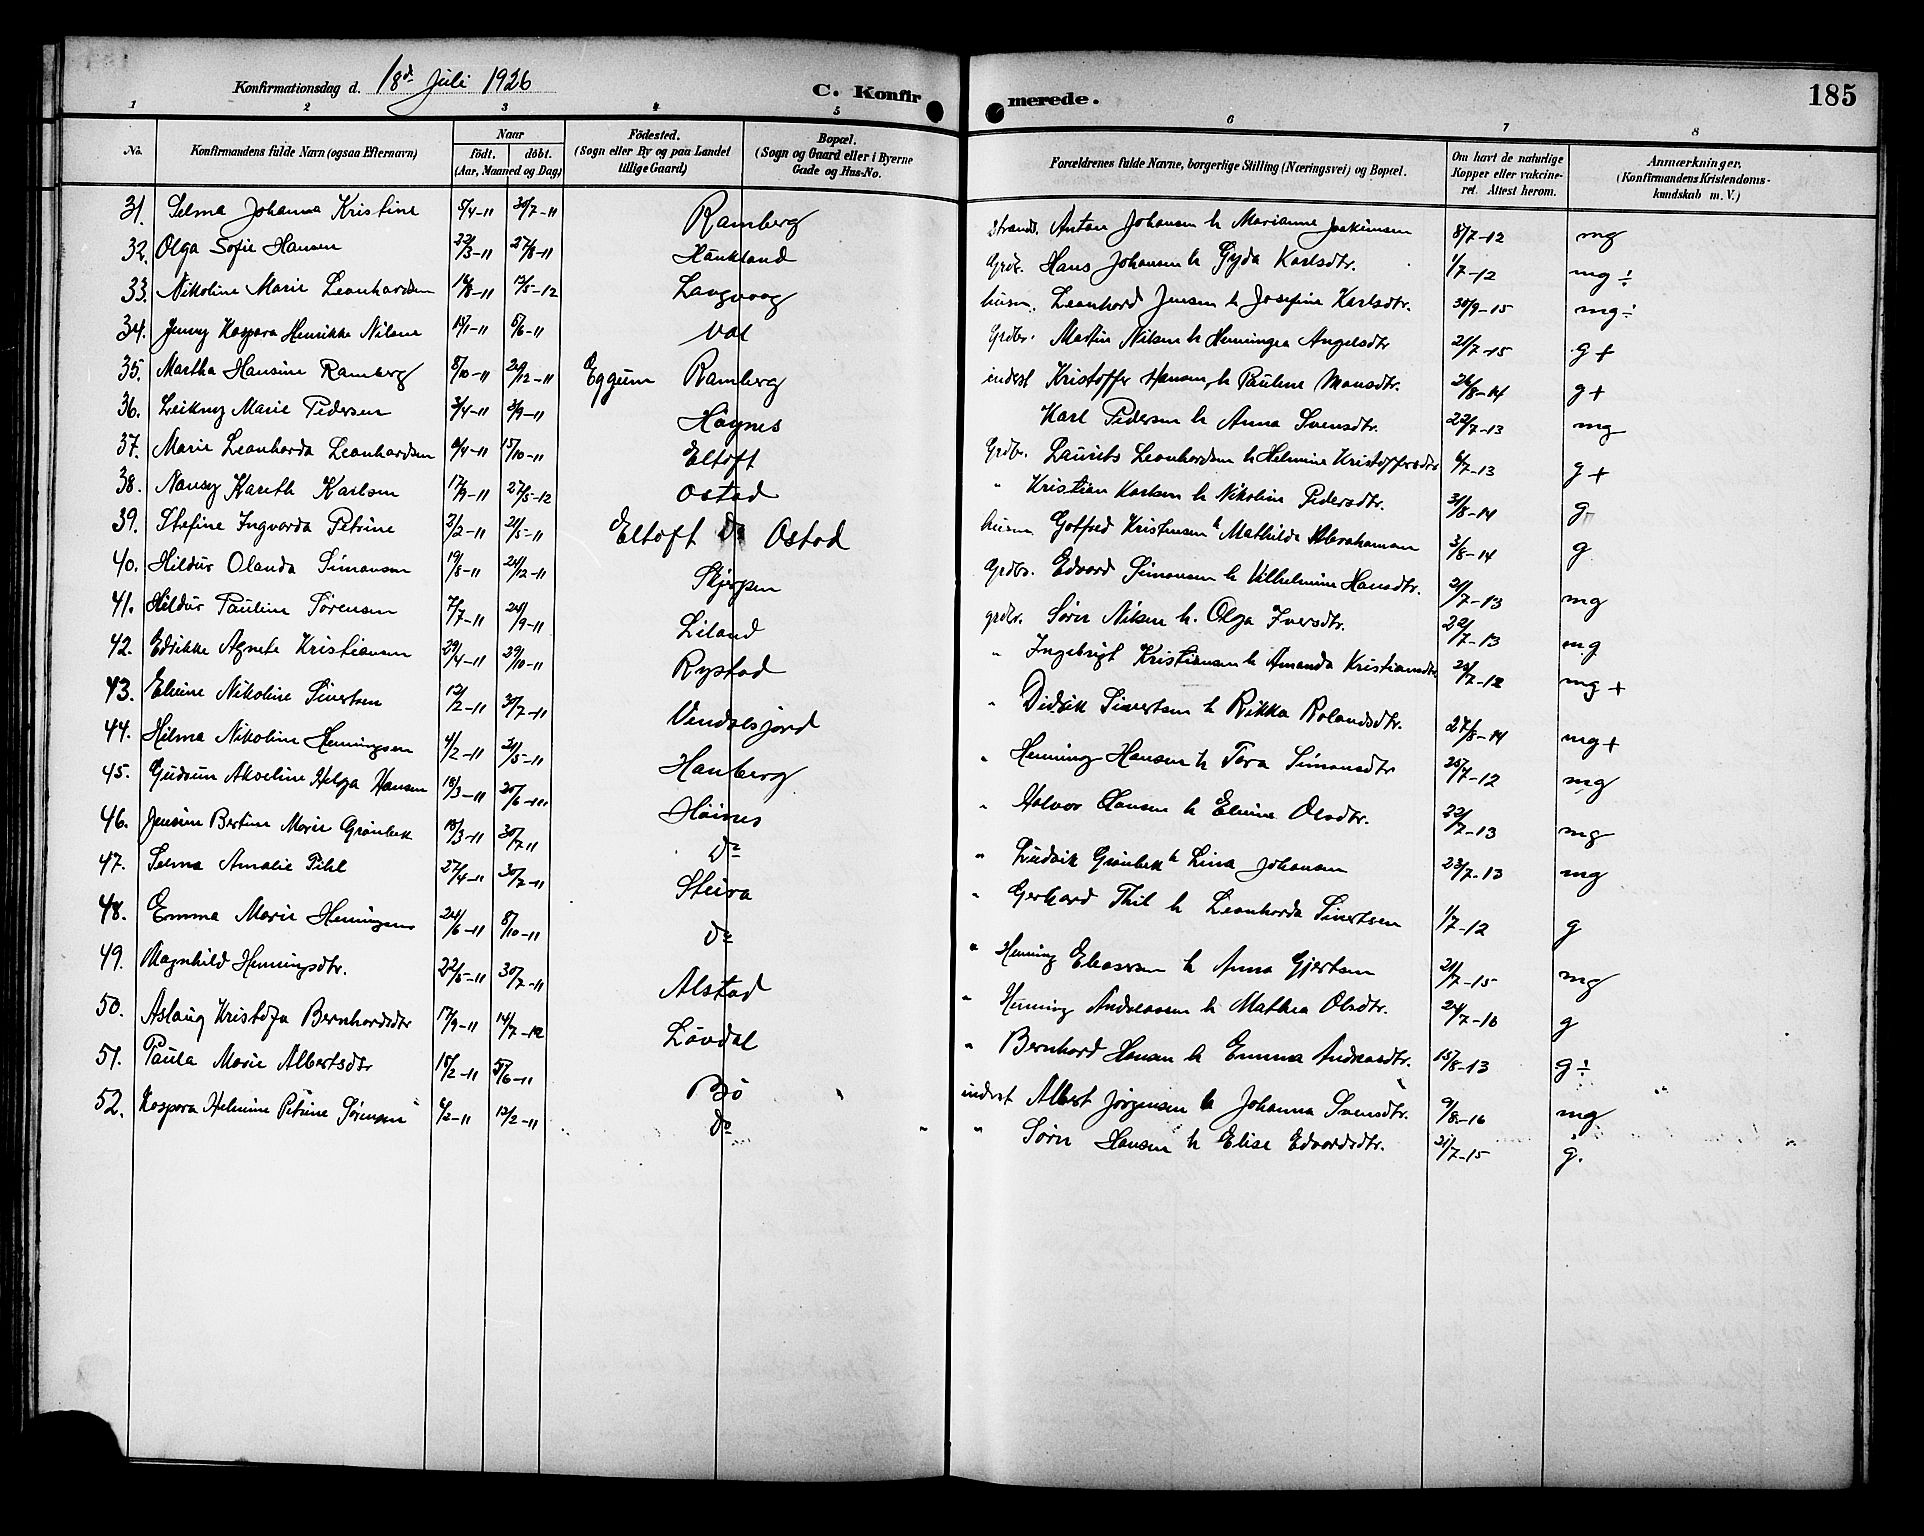 Konfirmationsdag d. 18d. Juli 1926 C. Konfirmerede. 185
1 2 3 4 5 6 7 8
No. Konfirmandens fulde Navn (ogsaa Efternavn) Naar født. døbt. (Aar, Maaned og Dag) Födested. (Sogn eller By og paa Landet tillige Gaard) Bopæl. (Sogn og Gaard eller i Byerne Gade og Hus-No. Forældrenes fulde Navne, borgerlige Stilling (Næringsvei) og Bopæl. Om havt de naturlige Kopper eller vakcineret. Attest herom. Anmærkninger. (Konfirmandens Kristendomskundskab m. V.)
31. Selma Johanna Kristine 5/4-11 30/7-11 Ramberg Strands. Anton Johansen h Marianne Joakimsen 8/7-12 mg
32. Olga Sofie Hansen 22/3-11 27/8-11 Haukland Grdb. Hans Johansen h Gyda Karlsdtr. 1/7-12 mg ÷
33. Nikoline Marie Leonhardsen 14/8-11 12/5-12 Langvaag husm. Leonhard Jensen h Josefine Karlsdtr. 30/9-15 mg ÷
34. Jenny Kaspara Henrikke Nilsen 10/1-11 5/6-11 Val Grdbr. Martin Nilsen h Henningea Angelsdtr 21/7-15 g +
35. Martha Hansine Ramberg 8/10-11 26/12-11 Eggum Ramberg inderst Kristoffer Hansen h Pauline Monsdtr. 26/8-14 g +
36. Leikny Marie Pedersen 3/4-11 3/9-11 Hagnes Karl Pedersen h Anna Svensdtr. 22/7-13 mg
37. Marie Leonharda Leonhardsen 9/4-11 15/10-11 Eltoft Grdbr. Laurits Leonhardsen h Helmine Kristoffersdtr 4/7-13 g +
38. Nancy Kareth Karlsen 17/9-11 27/5-12 Ostad " Kristian Karlsen h Nikoline Pedersdtr. 31/8-14 g
39. Stefine Ingvarda Petrine 2/2-11 21/5-11 Eltoft Do Ostad husm Gotfred Kristensen h Mathilde Abrahamsen 3/8-14 g
40. Hildur Olanda Simonsen 19/8-11 24/12-11 Skjerpen Grdbr. Edvard Simonsen h Vilhelmine Hansdtr. 21/7-13 mg
41. Hildur Pauline Sørensen 7/7-11 24/9-11 Liland grdbr. Sørn Nilsen h. Olga Iversdtr. 22/7-13 mg
42. Edrikke Agnete Kristiansen 29/4-11 29/10-11 Rystad " Ingebrigt Kristiansen h Amanda Kristiansdtr 20/7-12 mg +
43. Eluine Nikoline Sivertsen 12/2-11 30/7-11 Vendalsjord " Didrik Sivertsen h Rikka Rolandsdtr. 27/8-14 mg +
44. Hilma Nikoline Henningsen 4/2-11 21/5-11 Hanberg " Henning Hansen h Tora Simonsdtr 25/7-12 mg
45. Gudrun Akseline Helga Hansen 18/3-11 20/6-11 Høines " Halvor Hansen h Eluine Olsdtr. 22/7-13 mg
46. Jensine Bertine Marie Grønbek 18/3-11 30/7-11 Do " Ludvik Grønbek h Lina Johansen 23/7-13 mg
47. Selma Amalie Pihl 27/4-11 30/7-11 Steira " Gerhard Thil h Leonharda Sivertsen 1/7-12 g
48. Emma Marie Henningsen 24/6-11 8/10-11 Do " Henning Eliassen h Anna Gjertsen 21/7-15 mg
49. Magnhild Henningsdtr. 22/5-11 30/7-11 Alstad " Henning Andreassen h Mathea Olsdtr. 24/7-16 g
50. Aslaug Kristofa Bernhardsdtr 17/9-11 14/7-12 Løvdal " Bernhard Hansen h Emma Andreasdtr. 15/8-13 g ÷
51. Paula Marie Albertsdtr 15/2-11 5/6-11 Bø inderst Albert Jørgensen h Johanna Svensdtr. 9/8-16 mg
52. Kaspara Helmine Petrine Sørensen 4/2-11 12/2-11 Do " Sørn Hansen h Elise Edvardsdtr. 21/7-15 g.